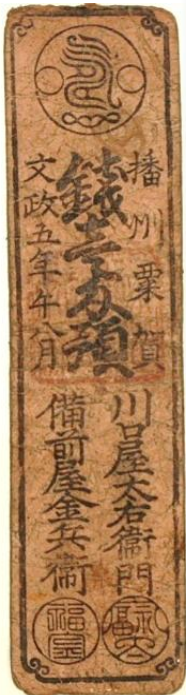 播州粟賀
銭壱匁預
文政五年午八月
川口屋太右衛門
備前屋金兵衛
福